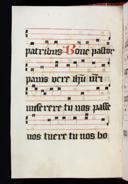 patribus Bone pastor
panis vere ihu nri
miserere tu nos pasce
nos tuere tu nos bo